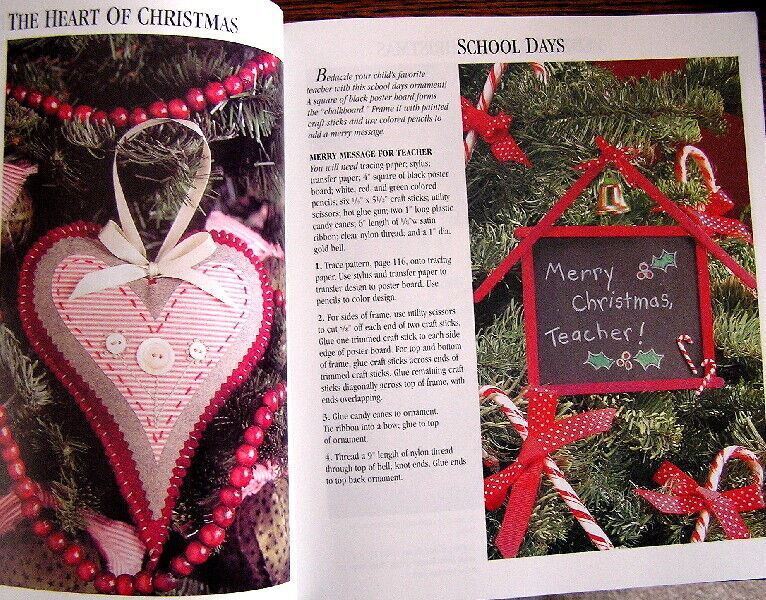 THE HEART OF CHRISTMAS
SCHOOL DAYS
Bedazzle your child's favorite
teacher with this school days ornament!
A square of black poster board forms
the "chalkboard." Frame it with painted
craft sticks and use colored pencils to
add a merry message.
MERRY MESSAGE FOR TEACHER
You will need tracing paper; stylus;
transfer paper; 4" square of black poster
board; white, red, and green colored
pencils; six x craft sticks; utility
scissors; hot glue gun; two 1" long plastic
candy canes; 6" length of satin
ribbon; clear nylon thread; and a 1" dia.
gold bell.
1. Trace pattern, page 116, onto tracing
paper. Use stylus and transfer paper to
transfer design to poster board. Use
pencils to color design.
2. For sides of frame, use utility scissors
to cut off each end of two craft sticks.
Glue one trimmed craft stick to each side
edge of poster board. For top and bottom
of frame, glue craft sticks across ends of
trimmed craft sticks. Glue remaining craft
sticks diagonally across top of frame, with
ends overlapping.
3. Glue candy canes to ornament.
Tie ribbon into a bow; glue to top
of ornament.
4. Thread a 9" length of nylon thread
through top of bell, knot ends. Glue ends
to top back ornament.
Merry
Christmas,
Teacher!